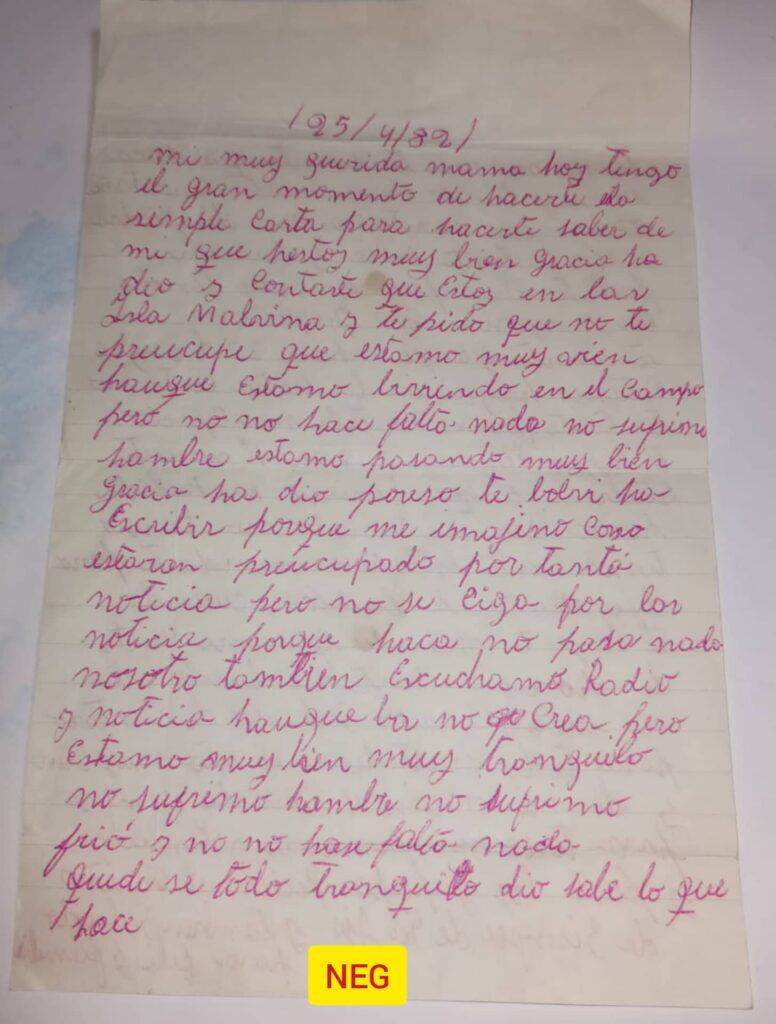 /25/4/82/
mi muy querida mama hoy tengo
el gran momento de hacerte esta
simple Carta para hacerte saber de
mi que hestoy muy bien gracia ha
dio y Contarte que Estoy en lar
Isla Malvina y te pido que no te
preucupe que estamo muy vien
hauque Estamo bivendo en el Campo
pero no no hace falta nada no sufrimo
hambre estamo pasando muy bien
Gracia ha dio poreso te bolvi ha
Escribir porque me imajino Como
estaran preucupado por tanta
noticia pero no se Ciga por lar
noticia porque haca no pasa nada
nosotro tambien Escuchamo Radio
y noticia hauque ba no Crea pero
Estamo muy bien muy tranquilo
no sufrimo hambre no sufrimo
frió y no no hase falta nada
quede se todo tranquilo dio sabe lo que
hace
NEG